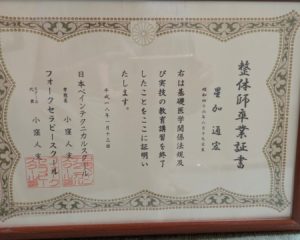 整体師卒業証書
星加 通宏
右は基礎医学関係法規及
び実技の教育講習を終了
したことをここに証明い
たします。
平成一八年一月十三日
日本ペインテクニカルスクール
学院長 小窪人実
フオークセラピースクール
代表 小窪人実